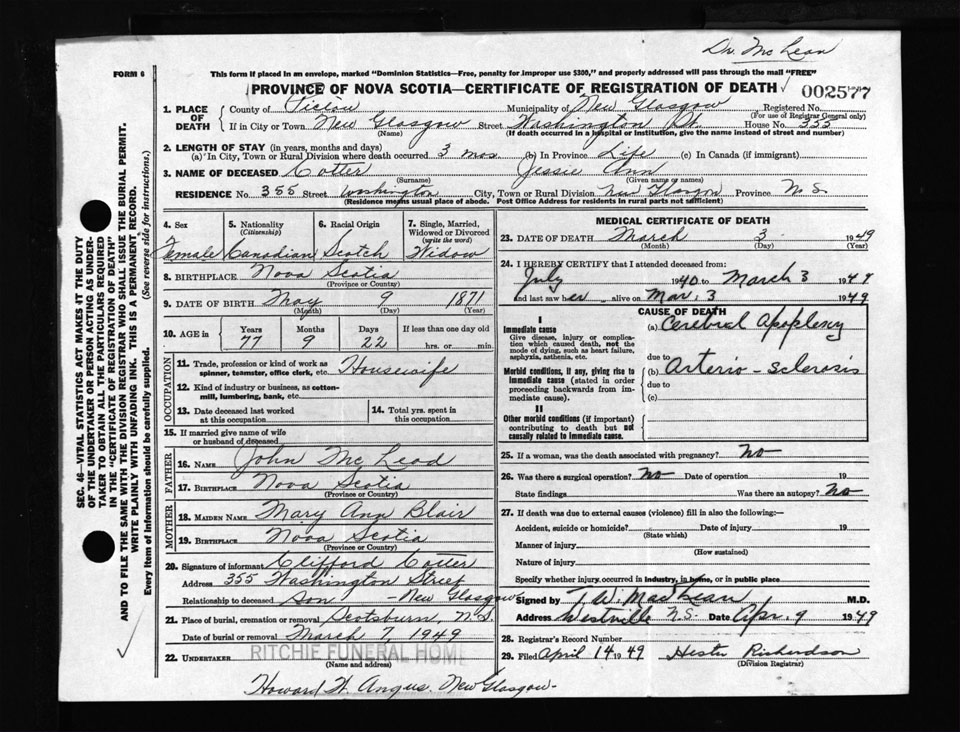 Dr. McLean
FORM 6
This form if placed in an envelope, marked "Dominion Statistics—Free, penalty for improper use $300," and properly addressed will pass through the mail "FREE"
PROVINCE OF NOVA SCOTIA—CERTIFICATE OF REGISTRATION OF DEATH ✓ 002577
1. PLACE OF DEATH
County of Pictou Municipality of New Glasgow Registered No.
(For use of Registrar General only)
If in City or Town New Glasgow Street Washington St. House No. 355
(Name) (If death occurred in a hospital or institution, give the name instead of street and number)
2. LENGTH OF STAY (in years, months and days)
(a) In City, Town or Rural Division where death occurred 3 mos. (b) In Province Life (c) In Canada (if immigrant)
3. NAME OF DECEASED Cotter Jessie Ann
(Surname) (Given name or names)
RESIDENCE No. 355 Street Washington City, Town or Rural Division New Glasgow Province N S
(Residence means usual place of abode. Post Office Address for residents in rural parts not sufficient)
4. Sex
Female
5. Nationality
(Citizenship)
Canadian
6. Racial Origin
Scotch
7. Single, Married, Widowed or Divorced
(write the word)
Widow
8. BIRTHPLACE Nova Scotia
(Province or Country)
9. DATE OF BIRTH May 9 1871
(Month) (Day) (Year)
10. AGE in
Years Months Days If less than one day old
77 9 22 hrs. or min.
OCCUPATION
11. Trade, profession or kind of work as spinner, teamster, office clerk, etc. Housewife
12. Kind of industry or business, as cotton-mill, lumbering, bank, etc.
13. Date deceased last worked at this occupation
14. Total yrs. spent in this occupation
15. If married give name of wife or husband of deceased
FATHER
16. NAME John McLeod
17. BIRTHPLACE Nova Scotia
(Province or Country)
MOTHER
18. MAIDEN NAME Mary Ann Blair
19. BIRTHPLACE Nova Scotia
(Province or Country)
20. Signature of informant Clifford Cotter
Address 355 Washington Street
Relationship to deceased Son - New Glasgow
21. Place of burial, cremation or removal Scotsburn, N.S.
Date of burial or removal March 7, 1949
22. UNDERTAKER RITCHIE FUNERAL HOME
(Name and address)
Howard W. Angus. New Glasgow-
MEDICAL CERTIFICATE OF DEATH
23. DATE OF DEATH March 3 1949
(Month) (Day) (Year)
24. I HEREBY CERTIFY that I attended deceased from:
July 1940 to March 3 1949
and last saw her alive on Mar. 3 1949
CAUSE OF DEATH
I
Immediate cause
Give disease, injury or complication which caused death, not the mode of dying, such as heart failure, asphyxia, asthenia, etc.
(a) Cerebral Apoplexy
due to
Morbid conditions, if any, giving rise to immediate cause (stated in order proceeding backwards from immediate cause).
(b) Arterio-Sclerosis
due to
(c)
II
Other morbid conditions (if important) contributing to death but not causally related to immediate cause.
25. If a woman, was the death associated with pregnancy? No
26. Was there a surgical operation? No Date of operation 19
State findings Was there an autopsy? No
27. If death was due to external causes (violence) fill in also the following:—
Accident, suicide or homicide? Date of injury 19
(State which)
Manner of injury
(How sustained)
Nature of injury
Specify whether injury occurred in industry, in home, or in public place
Signed by T. W. MacLean M.D.
Address Westville N.S. Date Apr. 9 1949
28. Registrar's Record Number
29. Filed April 14 1949 Hester Richardson
(Division Registrar)
SEC. 46—VITAL STATISTICS ACT MAKES IT THE DUTY
OF THE UNDERTAKER OR PERSON ACTING AS UNDER-
TAKER TO OBTAIN ALL THE PARTICULARS REQUIRED
IN THE "CERTIFICATE OF REGISTRATION OF DEATH"
AND TO FILE THE SAME WITH THE DIVISION REGISTRAR WHO SHALL ISSUE THE BURIAL PERMIT.
WRITE PLAINLY WITH UNFADING INK. THIS IS A PERMANENT RECORD.
Every item of information should be carefully supplied. (See reverse side for instructions.)